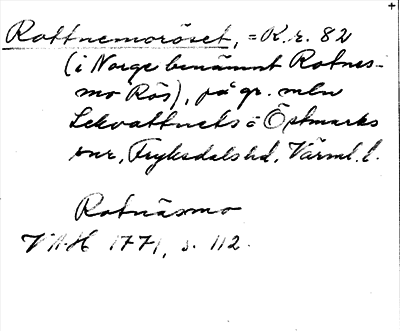 Rottnemoröset, = R. r. 82
(i Norge benämnt Rotnes-
mo Rös), på gr. mln
Lekvattnets o Östmarks
snr, Fryksdals hd, Värml. l.
Rotnäsmo
VAH 1771, s. 112.
+